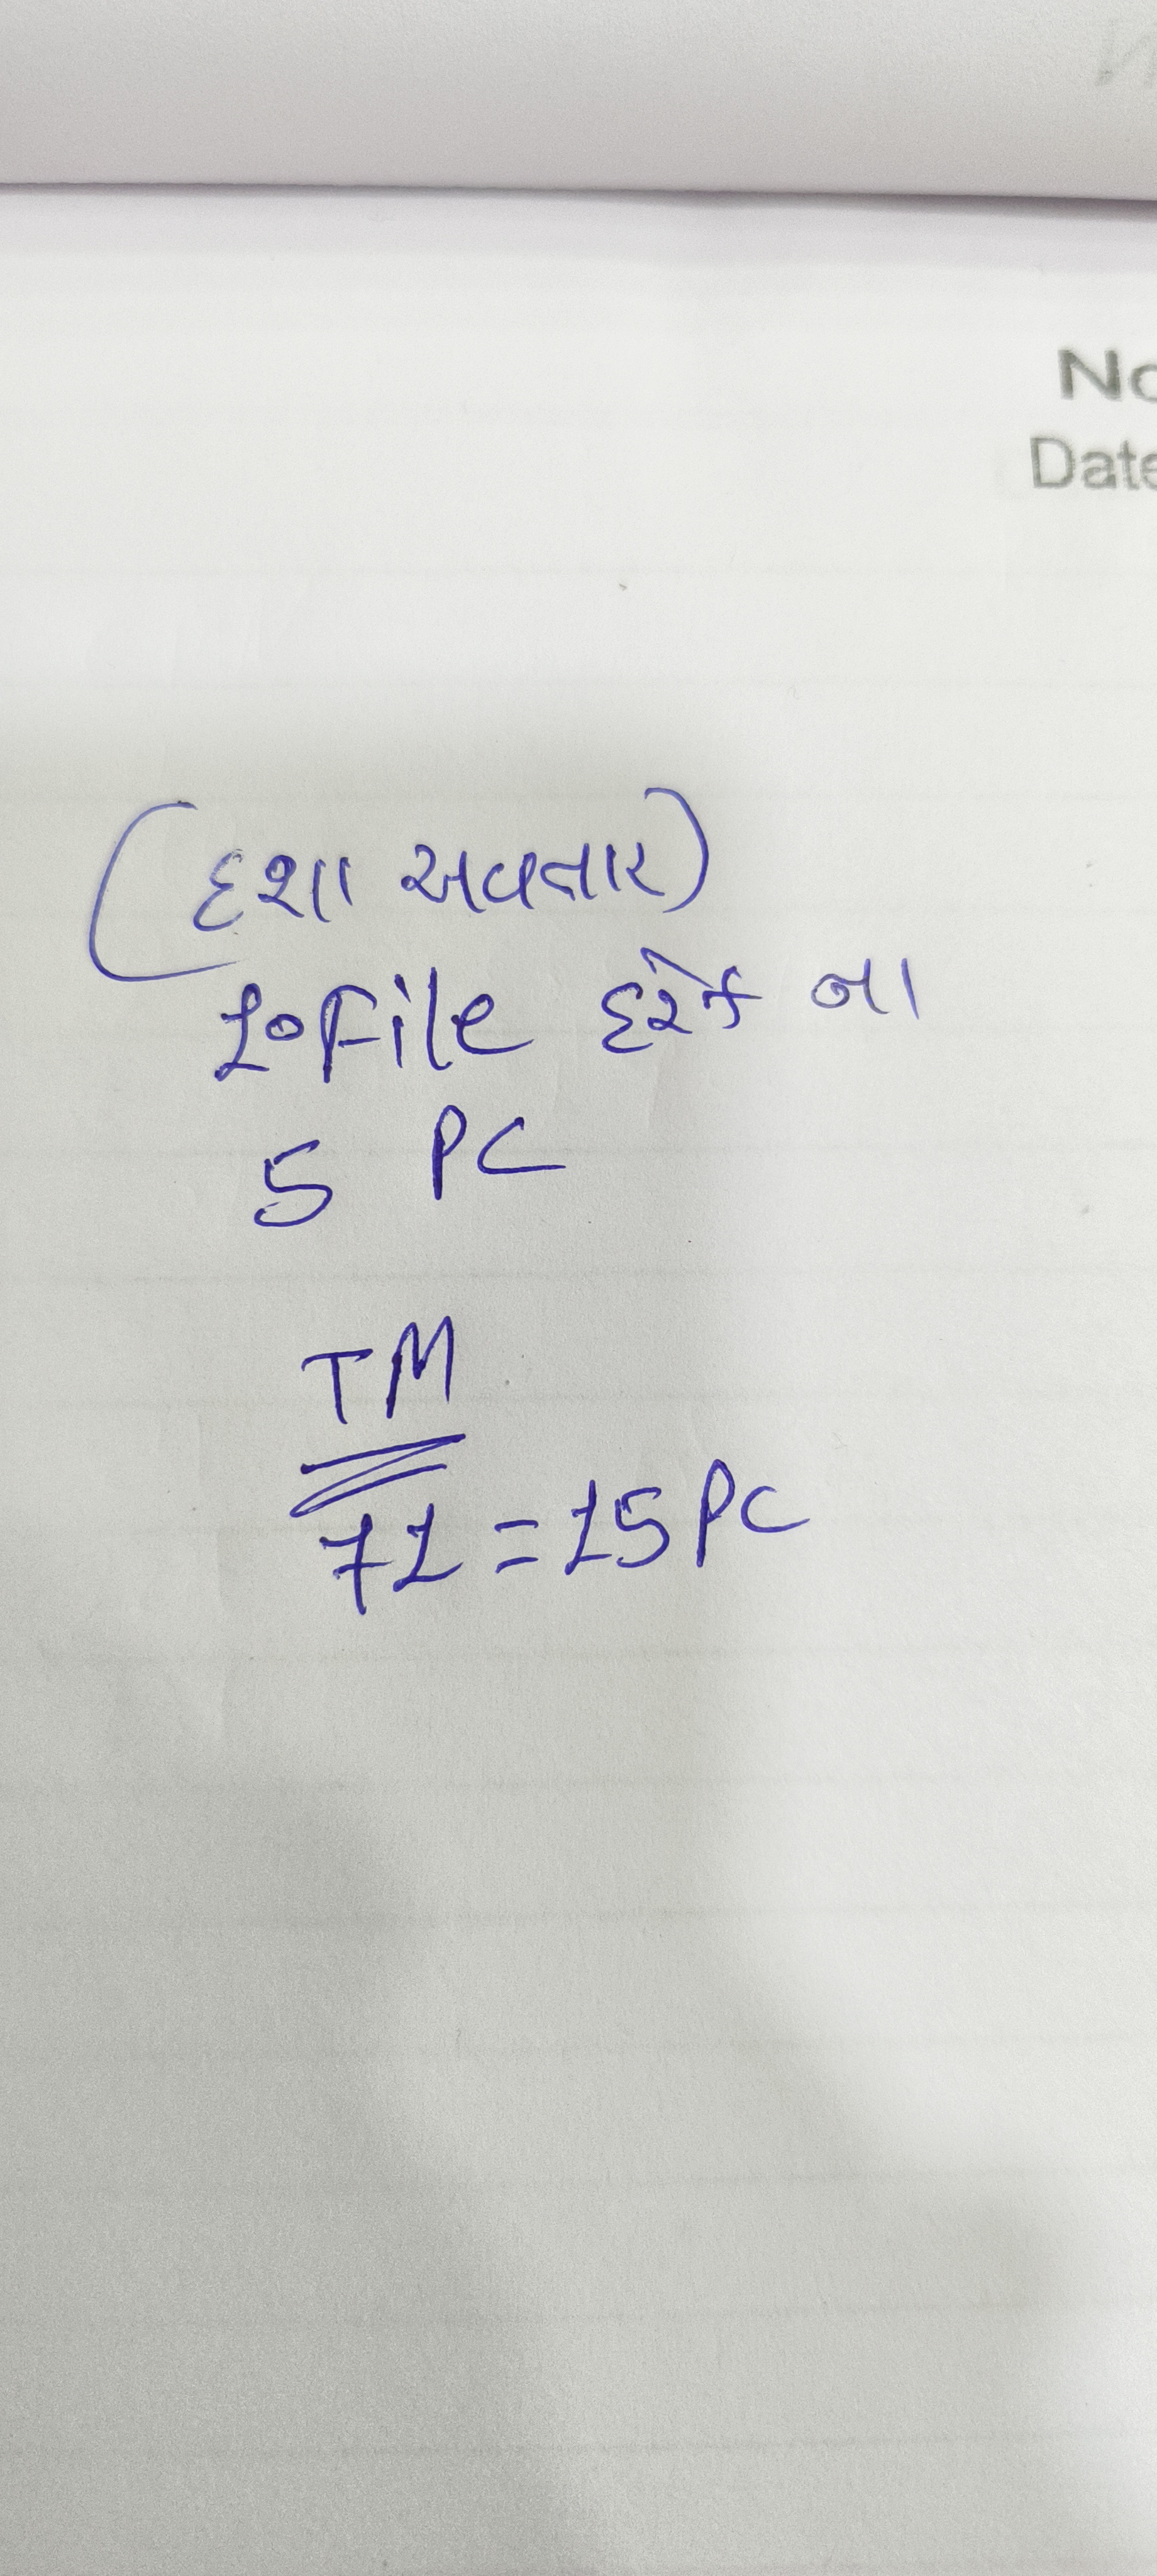 No
Date
(દશા અવતાર)
10 File દરેક ના
5 PC
TM
71 = 15 PC